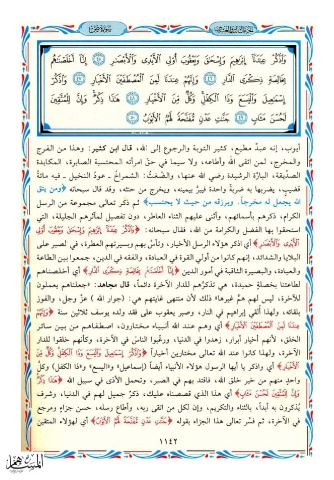 وَاذْكُرْ عِبَادَنَا إِبْرَاهِيمَ وَإِسْحَاقَ وَيَعْقُوبَ أُولِي الْأَيْدِي وَالْأَبْصَارِ ﴿٤٥﴾ إِنَّا أَخْلَصْنَاهُم
بِخَالِصَةٍ ذِكْرَى الدَّارِ ﴿٤٦﴾ وَإِنَّهُمْ عِندَنَا لَمِنَ الْمُصْطَفَيْنَ الْأَخْيَارِ ﴿٤٧﴾ وَاذْكُرْ
إِسْمَاعِيلَ وَالْيَسَعَ وَذَا الْكِفْلِ وَكُلٌّ مِّنَ الْأَخْيَارِ ﴿٤٨﴾ هَذَا ذِكْرٌ وَإِنَّ لِلْمُتَّقِينَ
لَحُسْنَ مَآبٍ ﴿٤٩﴾ جَنَّاتِ عَدْنٍ مُّفَتَّحَةً لَّهُمُ الْأَبْوَابُ ﴿٥٠﴾
أيوب، إنه عبدٌ مطيع، كثير التوبة والرجوع إلى الله، قال ابن كثير: وهذا من الفرج
والمخرج، لمن اتقى الله وأطاعه، ولا سيما في حق امرأته المحتسبة الصابرة، المكابدة
الصدِّيقة، البارَّة الرشيدة رضي الله عنها، والضغث: الشمراخ ـ عود النخيل ـ فيه مائة
قضيب، يضربها به ضربة واحدة فيبرُّ بيمينه، ويخرج من حنثه، وقد قال سبحانه ﴿ومن يتق
الله يجعل له مخرجاً. ويرزقه من حيث لا يحتسب﴾ ثم ذكر تعالى مجموعة من الرسل
الكرام، ذكرهم بأسمائهم، وأثنى عليهم الثناء العاطر، دون تفصيل لمآثرهم الجليلة، التي
استحقوا بها الفضل والكرامة من الله، فقال سبحانه: ﴿وَاذْكُرْ عِبَادَنَا إِبْرَاهِيمَ وَإِسْحَاقَ وَيَعْقُوبَ أُولِي
الْأَيْدِي وَالْأَبْصَارِ﴾ أي اذكر هؤلاء الرسل الأخيار، وتأسَّ بهم وبسيرتهم العطرة، في لصبر على
البلايا والشدائد، إنهم كانوا من أولي القوة في العبادة، والفقه في الدين، جمعوا بين الطاعة
والعبادة، والبصيرة الثاقبة في أمور الدين ﴿إِنَّا أَخْلَصْنَاهُم بِخَالِصَةٍ ذِكْرَى الدَّارِ﴾ أي أخلصناهم
لطاعتنا بخصلة حميدة، هي تذكرهم للدار الآخرة دائماً، قال مجاهد: جعلناهم يعملون
للآخرة، ليس لهم همٌّ غيرها، ذلك لأن منتهى غايتهم هي: (جوار الله) عزَّ وجلَّ، والفوز
بلقائه، ولهذا أُلقي إبراهيم في النار، وصبر يعقوب على فقد ولده يوسف ثلاثين سنة ﴿وَإِنَّهُمْ
عِندَنَا لَمِنَ الْمُصْطَفَيْنَ الْأَخْيَارِ﴾ أي وهم عند الله أنبياء مختارون، اصطفاهم من بين سائر
الخلق، لأنهم أخيار أبرار، زهدوا في الدنيا، ورغبوا الناس في الآخرة، وكأنهم خلقوا للدار
الآخرة، ولهذا كانوا عند الله تعالى مختارين أخياراً ﴿وَاذْكُرْ إِسْمَاعِيلَ وَالْيَسَعَ وَذَا الْكِفْلِ وَكُلٌّ مِّنَ
الْأَخْيَارِ﴾ أي واذكر يا أيها الرسول هؤلاء الأنبياء أيضاً (إسماعيل) و(اليسع) و(ذا الكفل) وكلٌّ
واحد منهم من خير خلق الله، فاقتد بهم في الصبر، وتحمل الأذى في سبيل الله ﴿هَذَا ذِكْرٌ
وَإِنَّ لِلْمُتَّقِينَ لَحُسْنَ مَآبٍ﴾ أي هذا الذي قصصناه عليك، ذكرٌ جميل لهم في الدنيا، وشرف
يُذكرون به أبداً، بالثناء والتكريم، وإن لكل من اتقى ربه، وأطاع رسله، حسن جزاء ومرجع
في الآخرة، ثم فسَّر تعالى هذا الجزاء بقوله ﴿جَنَّاتِ عَدْنٍ مُّفَتَّحَةً لَّهُمُ الْأَبْوَابُ﴾ أي لهؤلاء المتقين
١١٤٢